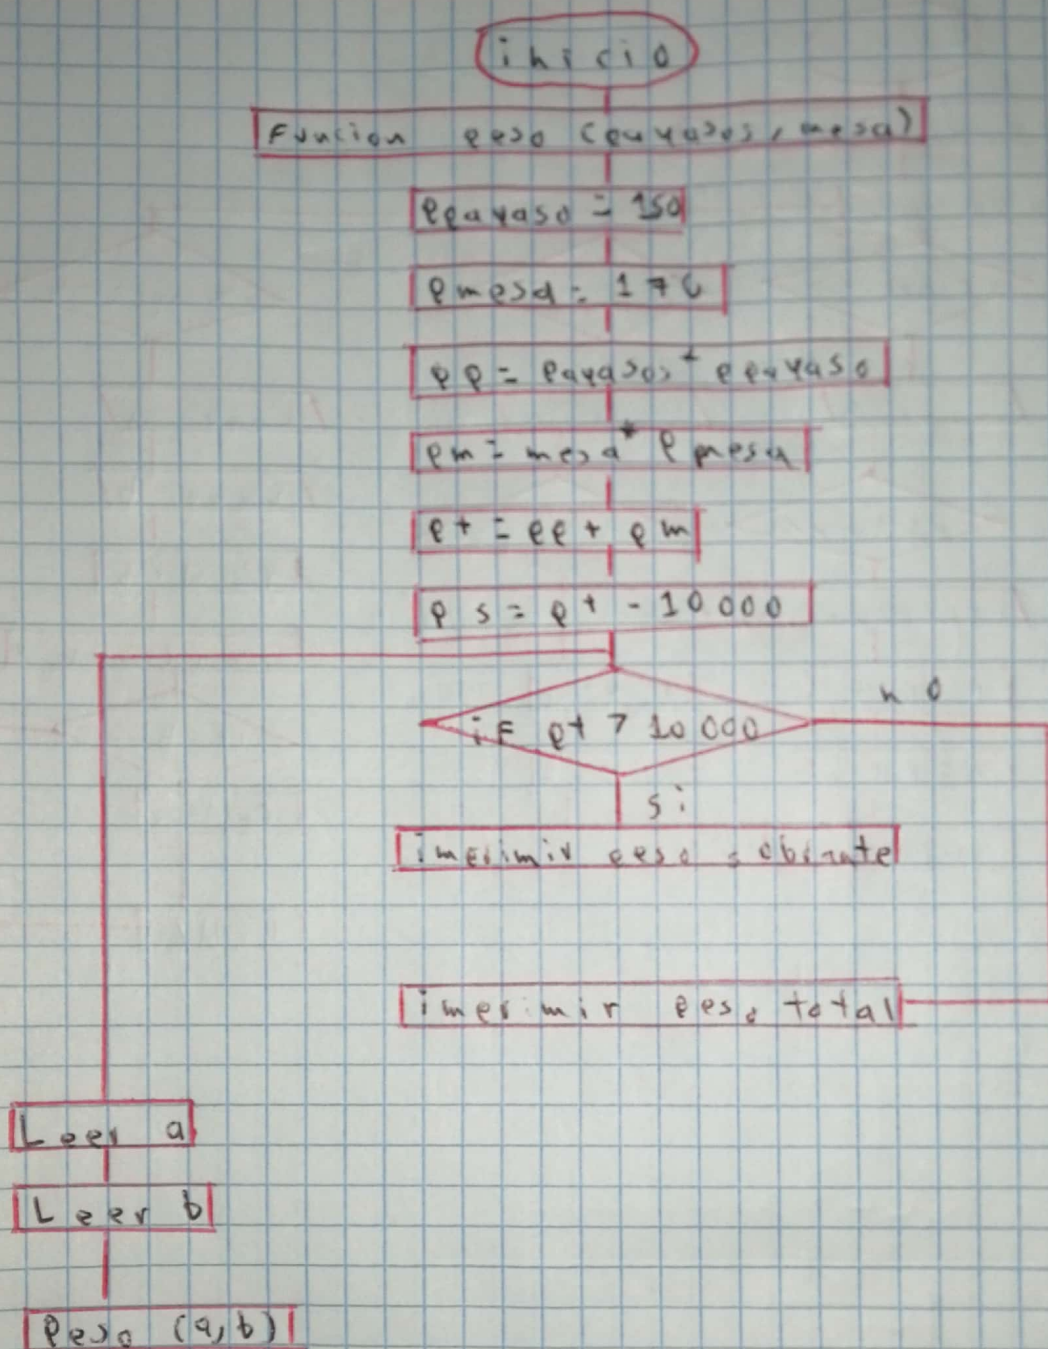 inicio
Funcion peso (payasos, mesa)
ppayaso = 150
pmesa = 176
pp = payasos * ppayaso
pm = mesa * pmesa
pt = pp + pm
ps = pt - 10000
no
if pt > 10 000
si
imprimir peso sobrante
imprimir peso total
Leer a
Leer b
Peso (a,b)